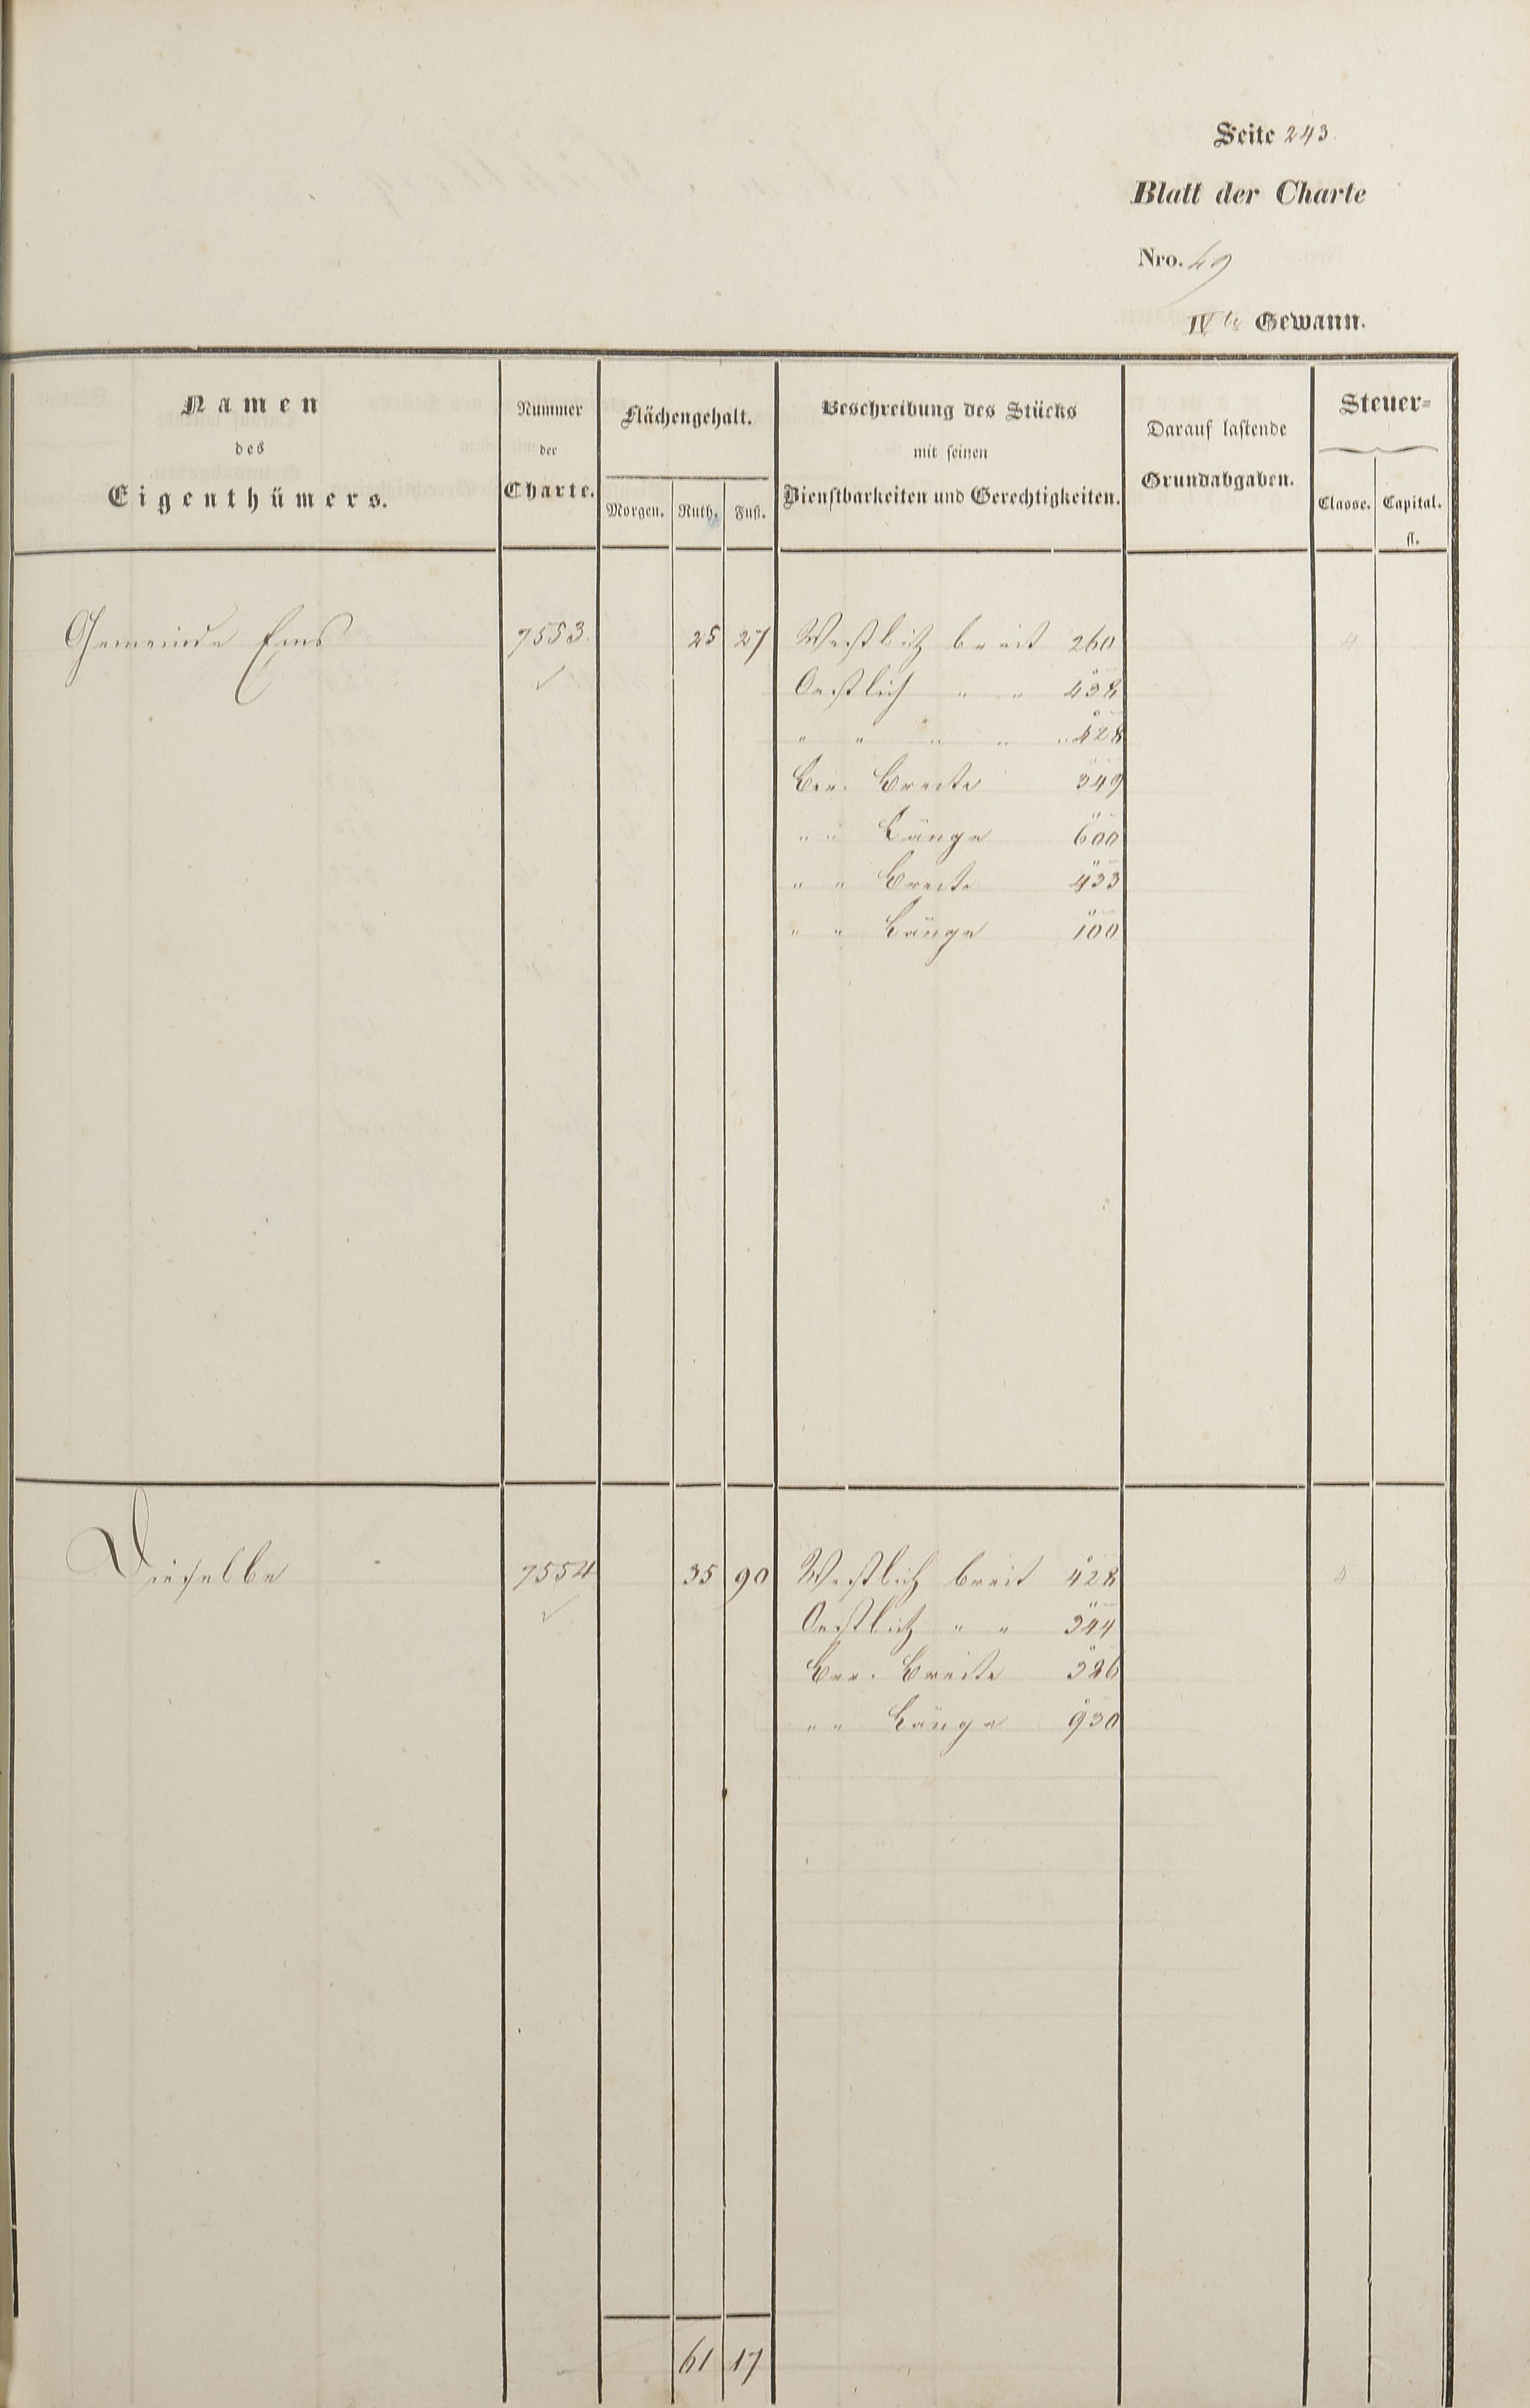 Seite 243.
Blatt der Charte
Nro. 49
IVte Gewann.
Namen
des
Eigenthümers.
Nummer
der
Charte.
Flächengehalt.
Morgen. Ruth. Fuß.
Beschreibung des Stücks
mit seinen
Dienstbarkeiten und Gerechtigkeiten.
Darauf lastende
Grundabgaben.
Steuer-
Classe. Capital.
fl.
Gemeinde Ems 7553. 25 27 Westlich breit 260 4
✓ Oestlich " " 438
" " " " " 428
Ber. Breite 349
" " Länge 600
" " Breite 433
" " Länge 100
Dieselbe 7554 35 90 Westlich breit 428 4
✓ Oestlich " " 344
Ber. Breite 386
" " Länge 930
61 17